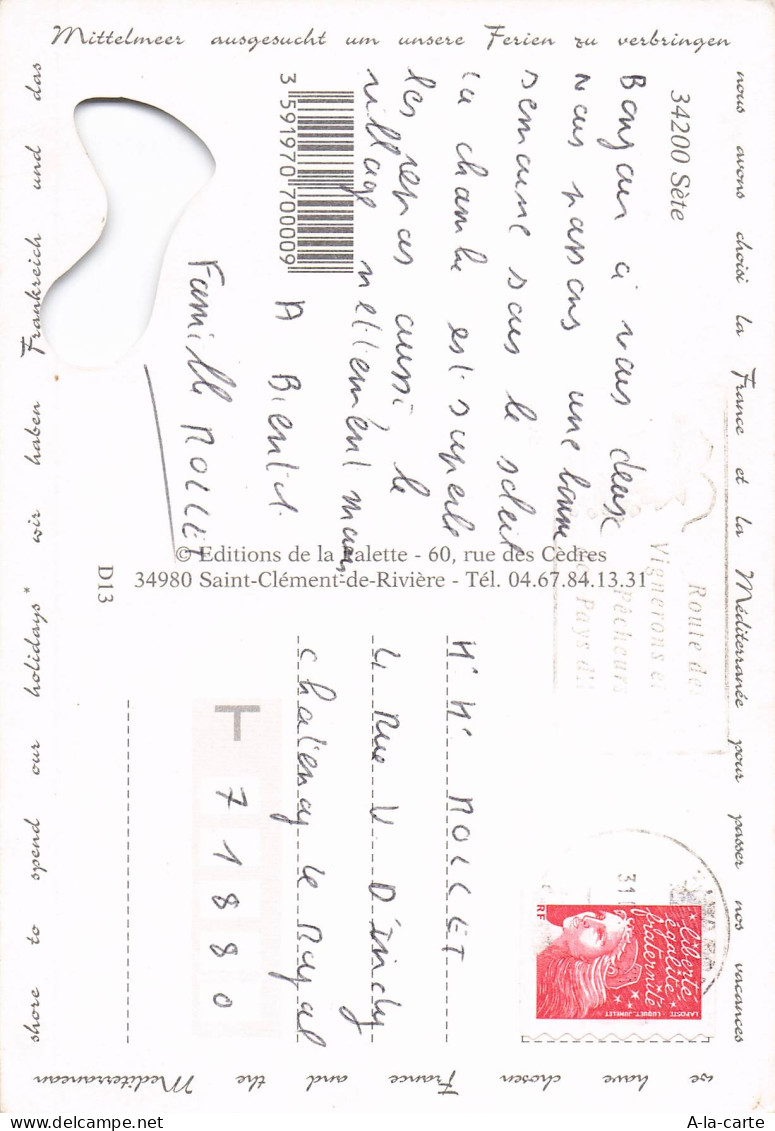 nous avons choisi la France et la Méditerranée pour passer nos vacances
we have chosen France and the Mediterranean
shore to spend our holidays* wir haben Frankreich und das
Mittelmeer ausgesucht um unsere Ferien zu verbringen
34200 Sète
Bonjour à vous deux
nous passons une bonne
semaine sous le soleil
la chambre est superbe
les repas aussi le
village
A Bientot
Famille NOLLET
3 591970 700009
© Editions de la Palette - 60, rue des Cèdres
34980 Saint-Clément-de-Rivière - Tél. 04.67.84.13.31
D13
Route des
Vignerons et
Pêcheurs
Pays d'
31
RF
liberté
égalité
fraternité
LAPOSTE - LUQUET, JUMELET
NOLLET
4 Rue V. D'indy
Chatenoy le Royal
T
71880
www.delcampe.net
A-la-carte